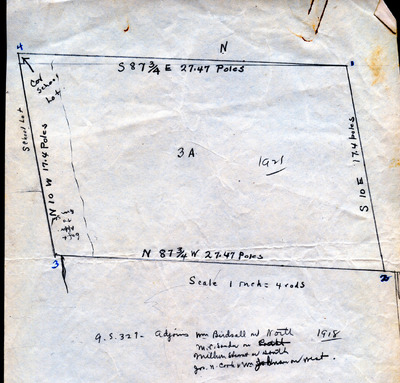 4
N
S 87 3/4 E 27.47 Poles
Cor
School
Lot
School Lot
N 10 W 17.4 Poles
3 A
1921
S 10 E 17.4 poles
3
N 87 3/4 W 27.47 Poles
2
Scale 1 inch = 4 rods
G.S. 327- Adjoins Wm Birdsall on North 1918
on East
on South
Jno. N. Cook & Wm on West.